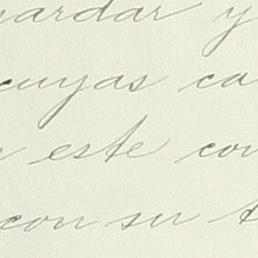 uardar y
cuyas ca
este con
con su t